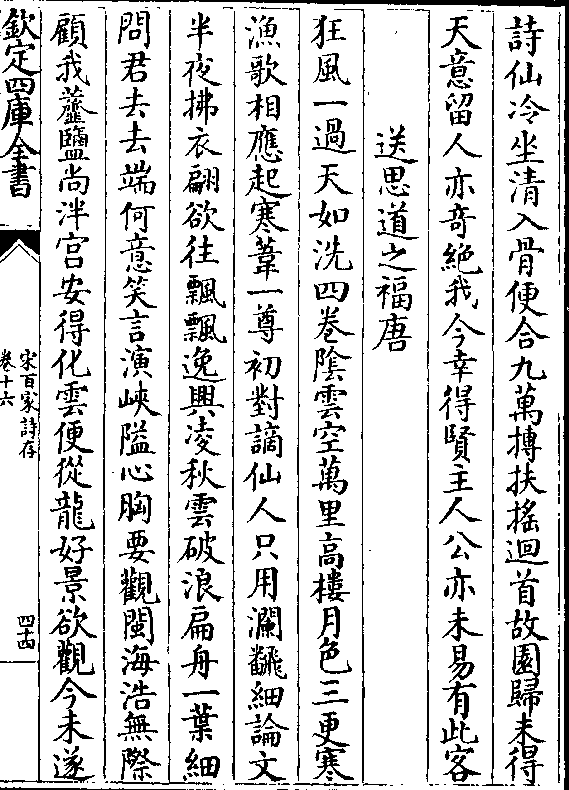 詩仙冷坐清入骨便合九萬摶扶搖迴首故園歸未得
天意留人亦奇絶我今幸得賢主人公亦未易有此客
送思道之福唐
狂風一過天如洗四巻陰雲空萬里高樓月色三更寒
漁歌相應起寒葦一尊初對謫仙人只用瀾翻細論文
半夜拂衣翩欲往飄飄逸興凌秋雲破浪扁舟一葉細
問君去去端何意笑言演峽隘心胸要觀閩海浩無際
顧我虀鹽尚泮宮安得化雲便從龍好景欲觀今未遂
欽定四庫全書
宋百家詩存
卷十六
四十四